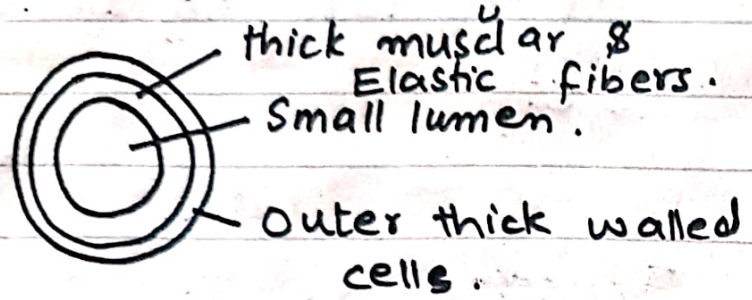 thick muscular &
Elastic fibers.
Small lumen.
outer thick walled
cells.